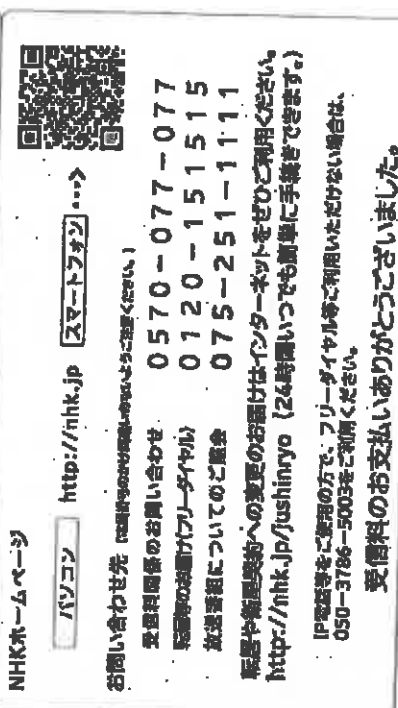 NHKホームページ
パソコン http://nhk.jp スマートフォン --->
お問い合わせ先 (お電話番号のおかけ間違いのないようご注意ください。)
受信料関係のお問い合わせ 0570-077-077
転居等のお届け(フリーダイヤル) 0120-151515
放送番組についてのご照会 075-251-1111
転居や衛星契約への変更のお届けはインターネットをぜひご利用ください。
http://nhk.jp/jushinryo (24時間いつでも簡単に手続きできます。)
IP電話等をご使用の方で、フリーダイヤル等ご利用いただけない場合は、
050-3786-5003をご利用ください。
受信料のお支払いありがとうございました。